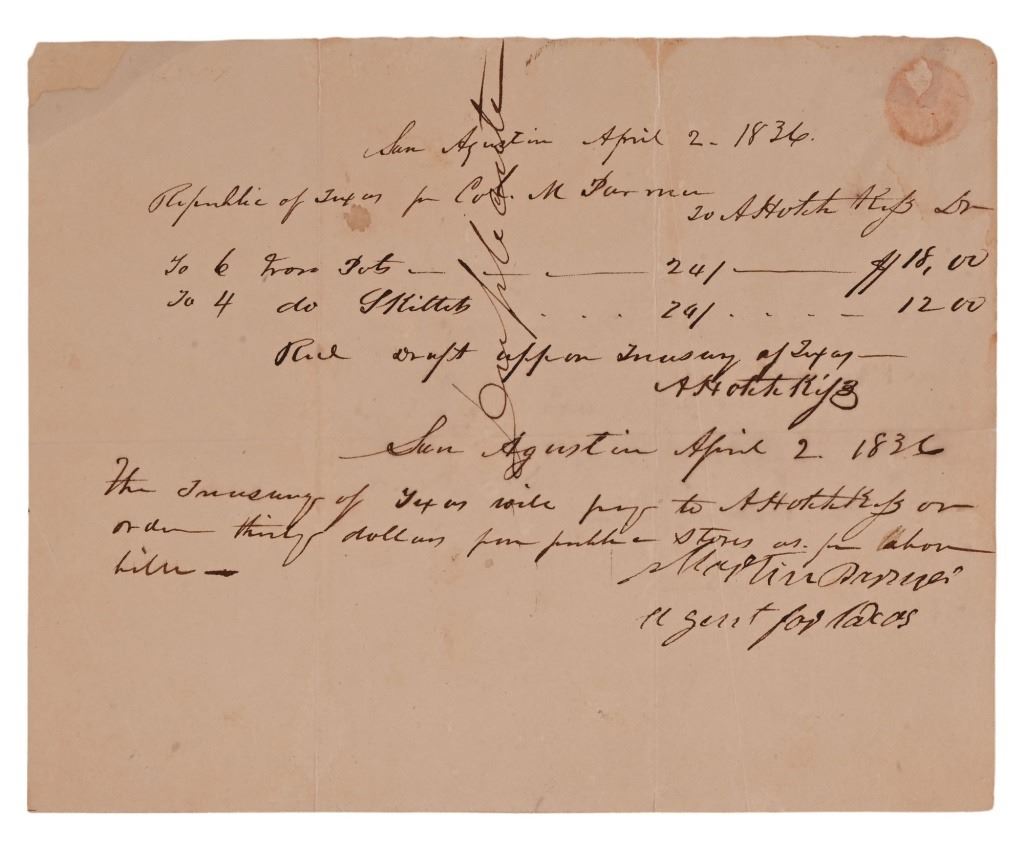 San Agustin April 2 - 1836.
Republic of Texas pr Col. M Parmer
To A Hotchkiss Dr
To 6 Iron Pots — — — 24/ — $18,00
To 4 do Skillets . . . . 24/ . . . . — 12 00
Recd Draft uppon Treasury of Texas —
A Hotchkiss
San Agustin April 2. 1836
The Treasury of Texas will pay to A Hotchkiss or
order thirty dollars for public stores as pr above
bill —
Martin Parmer
agent for Texas
Duplicate